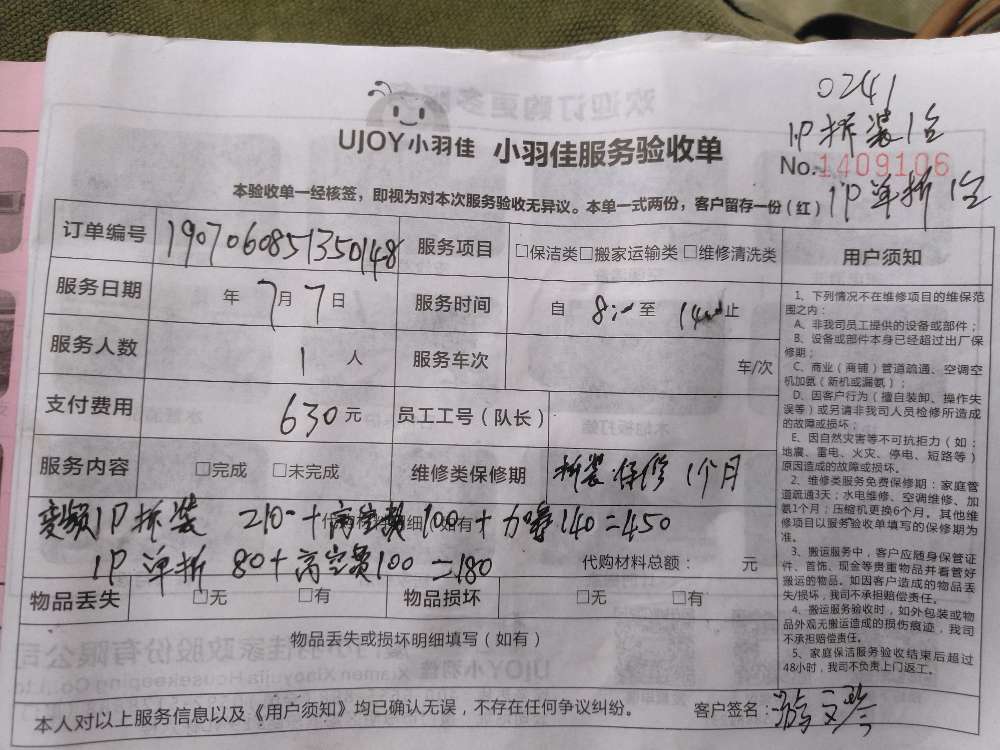 0241
1P拆装1台
UJOY小羽佳 小羽佳服务验收单
No. 1409106
1P单拆1台
本验收单一经核签，即视为对本次服务验收无异议。本单一式两份，客户留存一份（红）
订单编号 1907060851350148 服务项目 □保洁类□搬家运输类 □维修清洗类
服务日期 年7月7日 服务时间 自 8:- 至 14 止
服务人数 1 人 服务车次 车/次
支付费用 630元 员工工号（队长）
服务内容 □完成 □未完成 维修类保修期 拆装保修1个月
变频1P拆装 210-+高空费100+加氟140=450
1P单拆 80+高空费100=180
代购材料总额： 元
物品丢失 □无 □有 物品损坏 □无 □有
物品丢失或损坏明细填写（如有）
本人对以上服务信息以及《用户须知》均已确认无误，不存在任何争议纠纷。 客户签名：
用户须知
1、下列情况不在维修项目的维保范
围之内：
A、非我司员工提供的设备或部件；
B、设备或部件本身已经超过出厂保
修期；
C、商业（商铺）管道疏通、空调空
机加氨（新机或漏氨）；
D、因客户行为（擅自装卸、操作失
误等）或另请非我司人员检修所造成
的故障或损坏；
E、因自然灾害等不可抗拒力（如：
地震、雷电、火灾、停电、短路等）
原因造成的故障或损坏。
2、维修类服务免费保修期：家庭管
道疏通3天；水电维修、空调维修、加
氨1个月；压缩机更换6个月。其他维
修项目以服务验收单填写的保修期为
准。
3、搬运服务中，客户应随身保管证
件、首饰、现金等贵重物品并看管好
搬运的物品。如因客户造成的物品丢
失/损坏，我司不承担赔偿责任。
4、搬运服务验收时，如外包装或物
品外观无搬运造成的损伤痕迹，我司
不承担赔偿责任。
5、家庭保洁服务验收结束后超过
48小时，我司不负责上门返工。